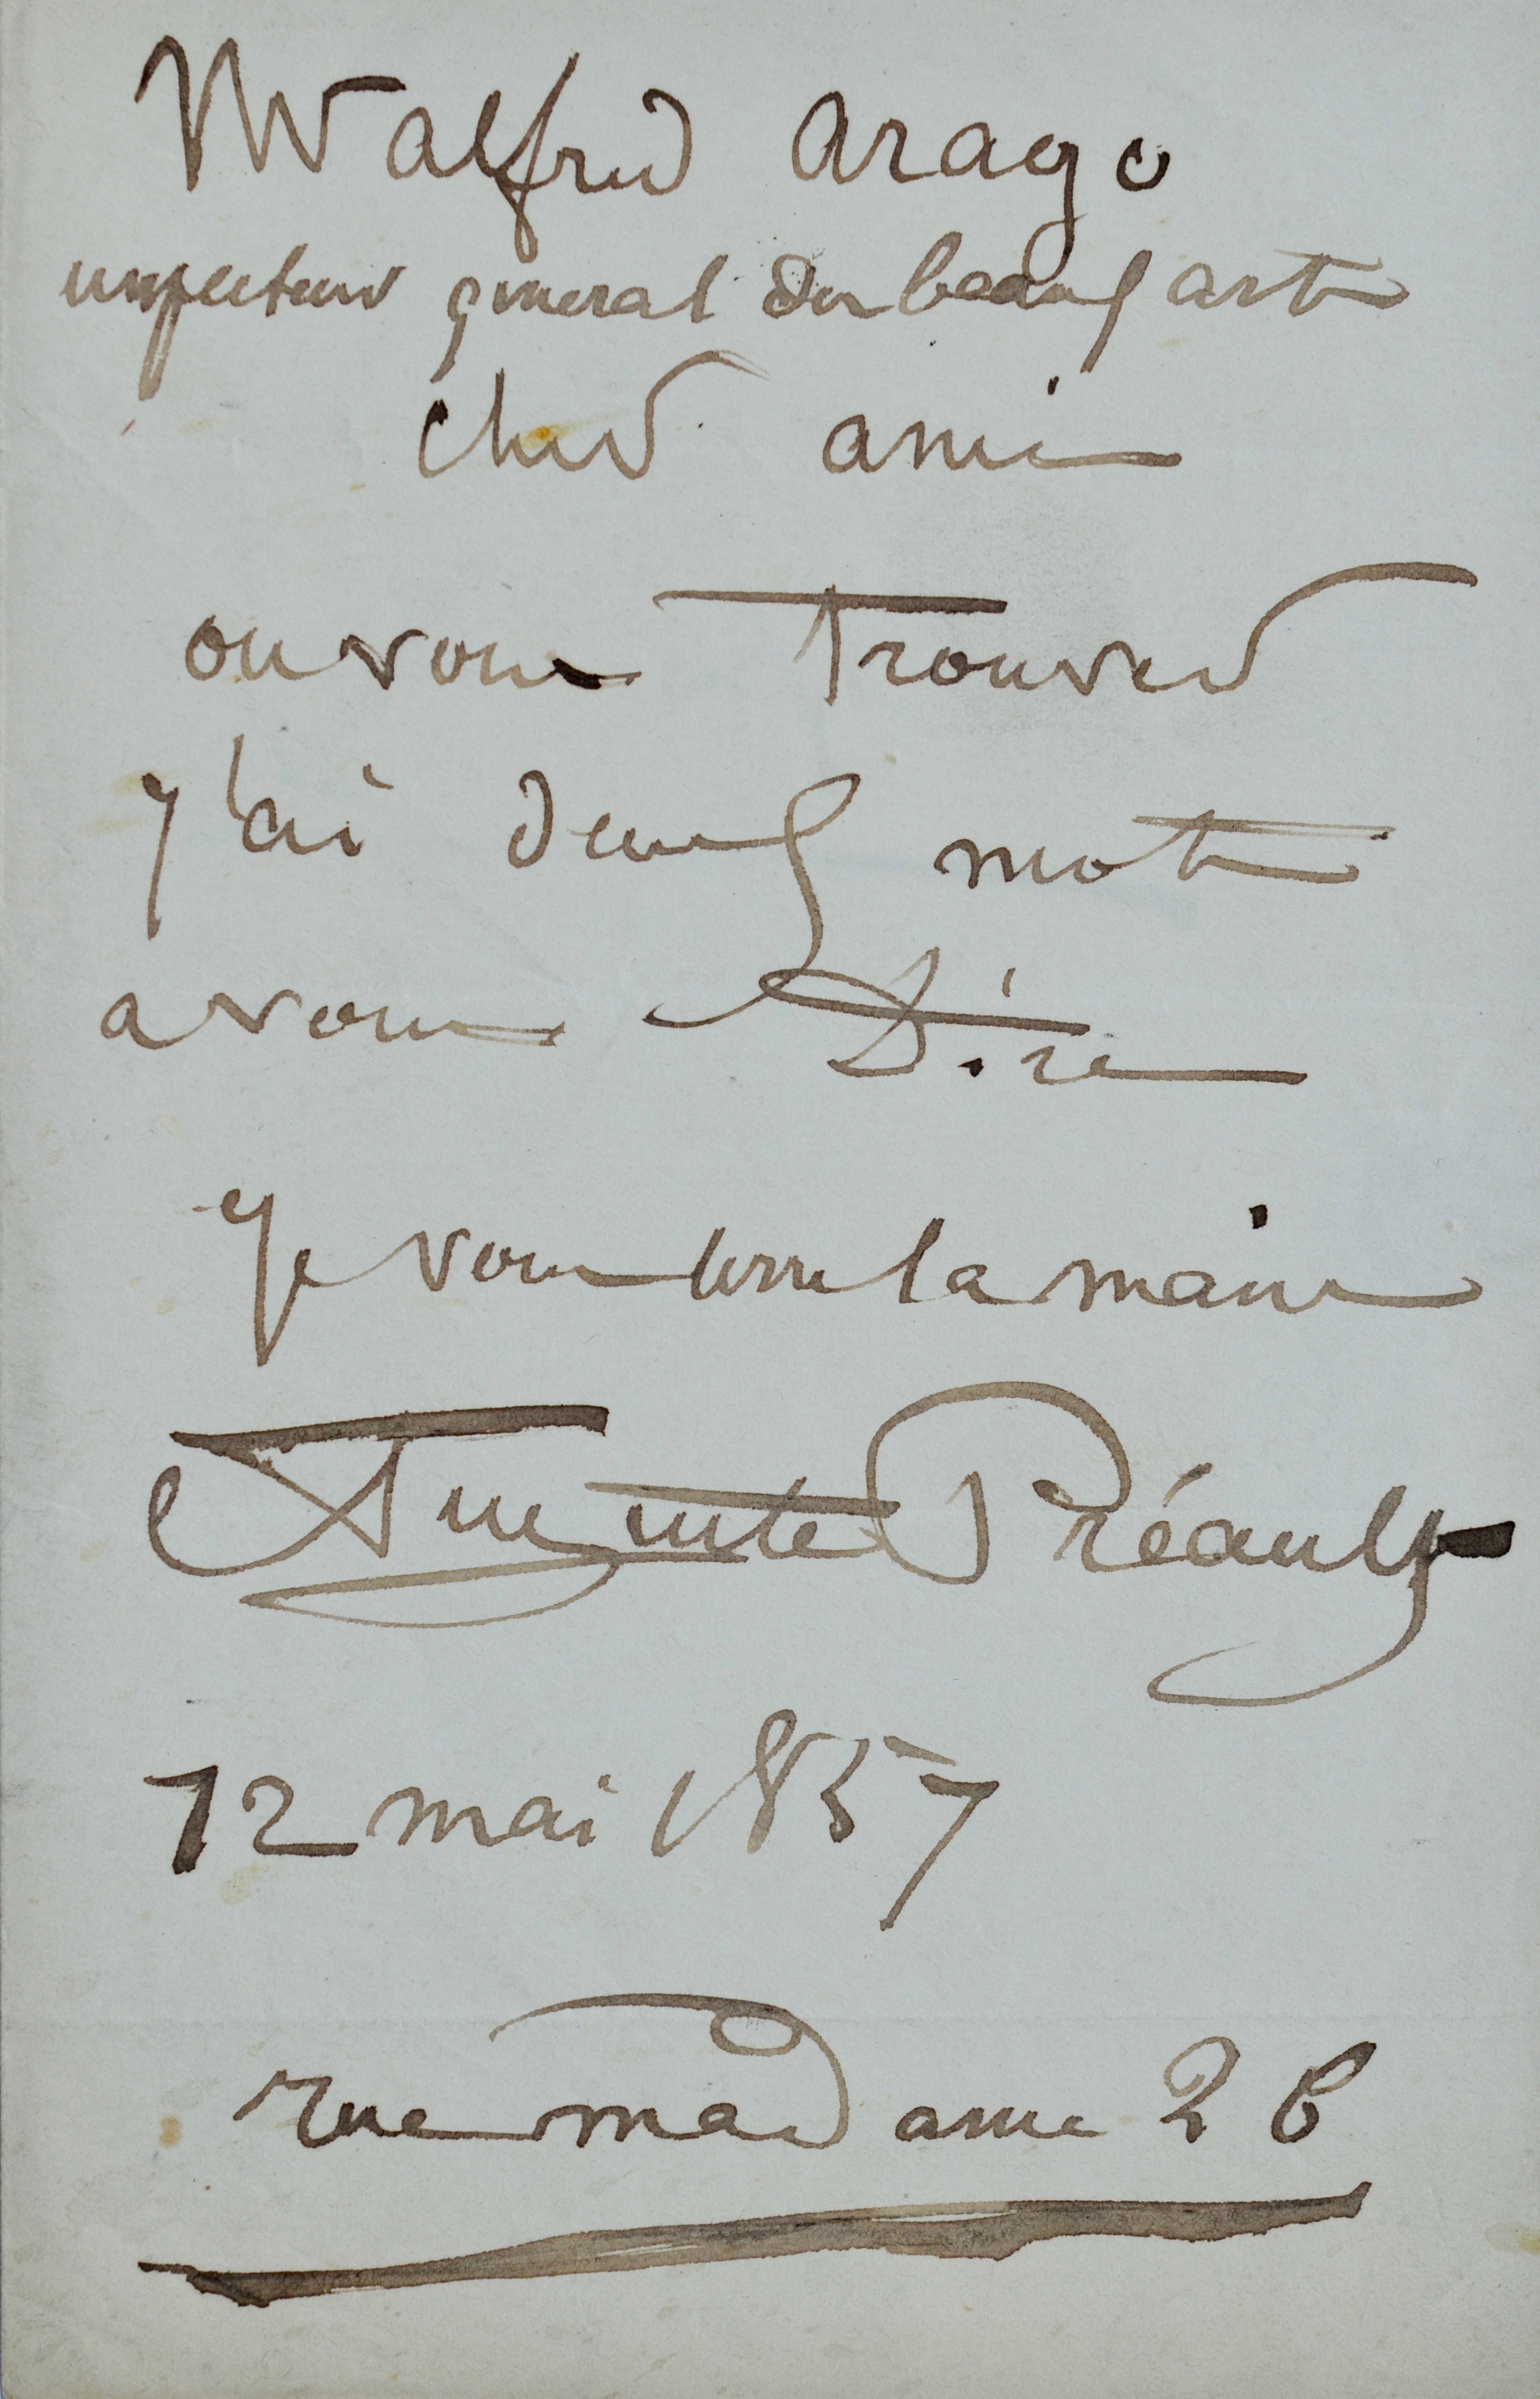 Walfred arago
inspecteur general des beaux arts
cher ami
ou vous trouver
j'ai deux mots
a vous dire
je vous serre la main
Auguste Préault
12 mai 1857
rue madame 26